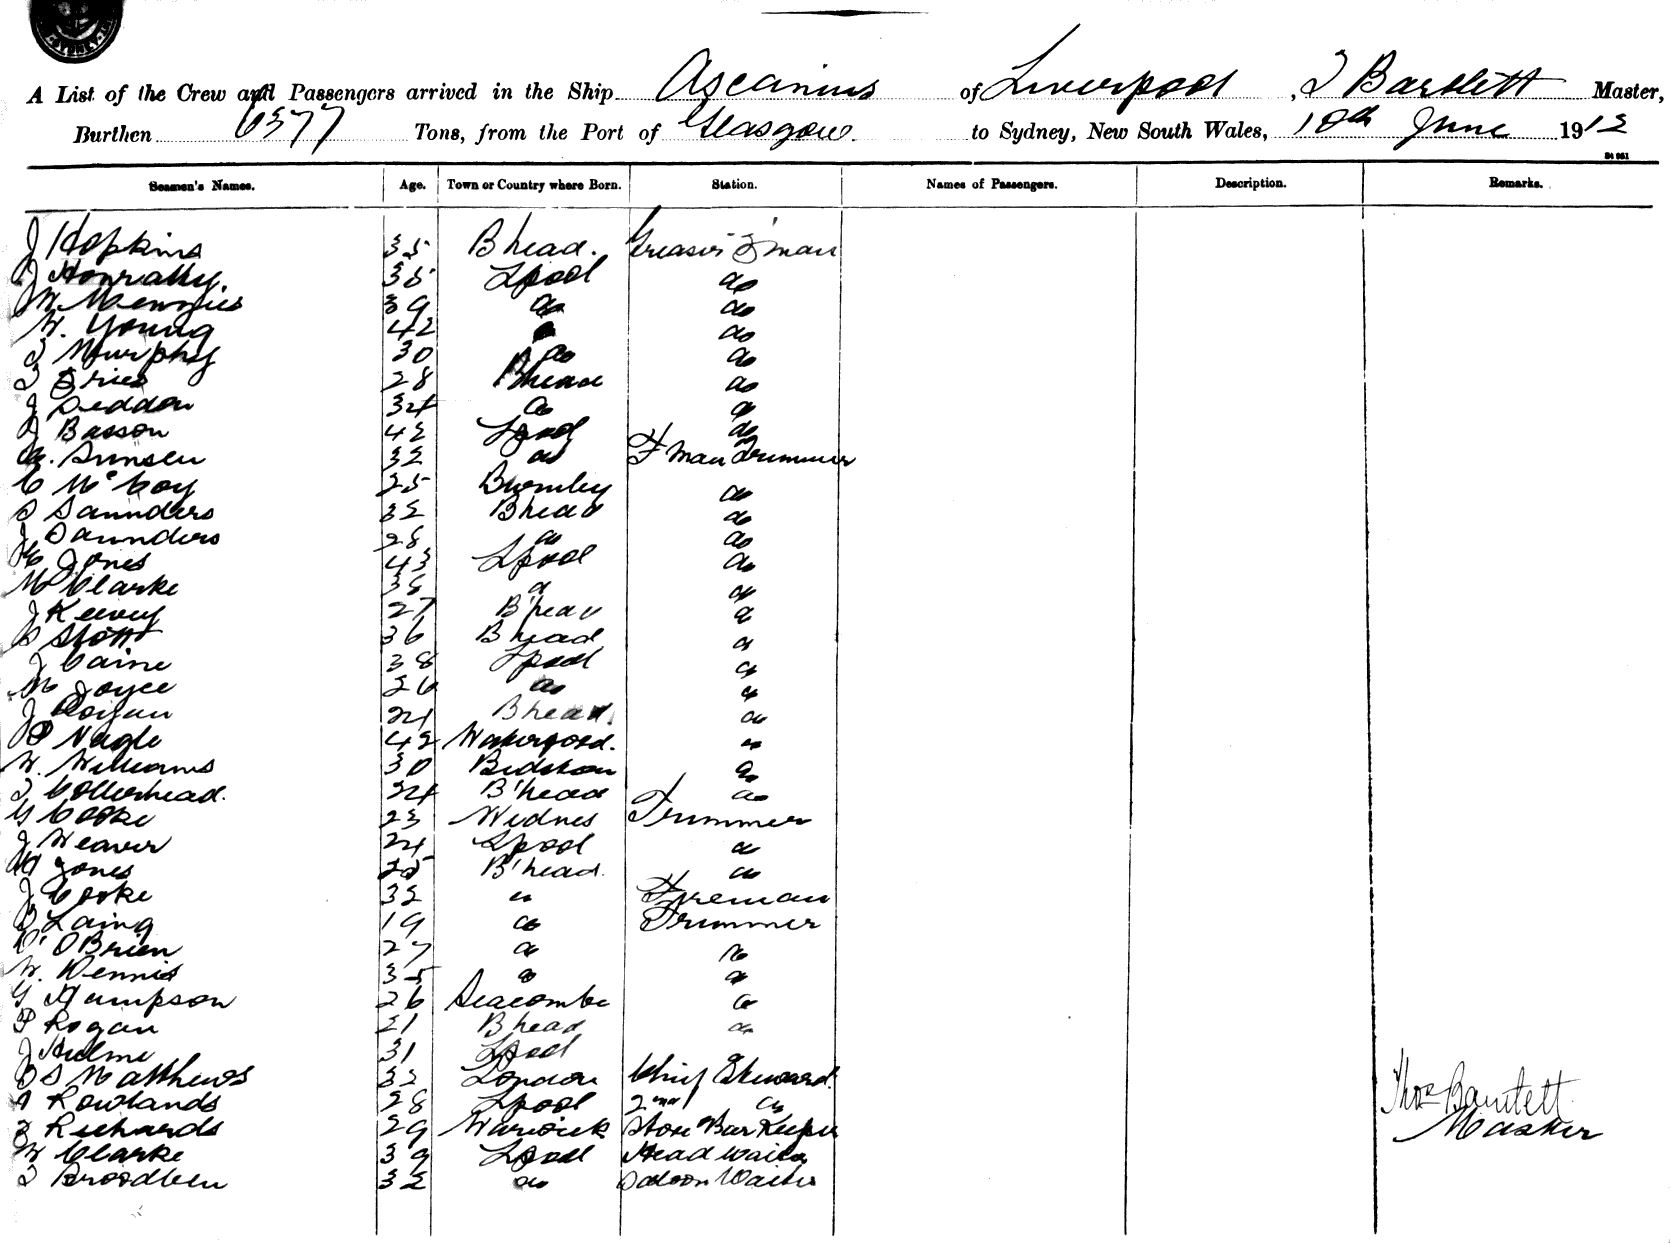 SYDNEY
A List of the Crew and Passengers arrived in the Ship Ascanius of Liverpool, T Bartlett Master,
Burthen 6577 Tons, from the Port of Glasgow. to Sydney, New South Wales, 10th June 1912
Seamen's Names. Age. Town or Country where Born. Station. Names of Passengers. Description. Remarks.
J Hopkins 35 B head. Greaser F'man
J Hanratty. 35 Lpool do
W Menzies 39 do do
W. Young 42 do
T Murphy 30 do do
T 28 Bhead do
J Seddon 34 do do
J Basson 42 Lpool do
32 do F man Trimmer
C McCoy 25 Burnley do
S Saunders 32 Bhead do
J Saunders 28 do do
Jones 43 Lpool do
M Clarke 38 do do
J Keevey 27 B'head do
S Stott 36 B head do
J Caine 38 Lpool do
M Joyce 26 do do
J Rogan 24 B head. do
P Nagle 42 Waterford. do
W. Williams 30 Bidston do
T Collerhead. 24 B'head do
G Cooke 23 Widnes Trimmer
J Weaver 24 Lpool do
W Jones 25 B'head. do
J Cooke 32 do Fireman
Laing 19 do Trimmer
O'Brien 27 do do
W. Dennis 35 do do
G Hampson 26 Seacombe do
P Rogan 21 B head do
J Hulme 31 Lpool
S Matthews 32 London Chief Steward.
A Rowlands 28 Lpool 2nd do
Richards 29 Warwick Store Bar Keeper
W Clarke 39 Lpool Head Waiter
T Broadben 32 do Saloon Waiter
Thos Bartlett
Master